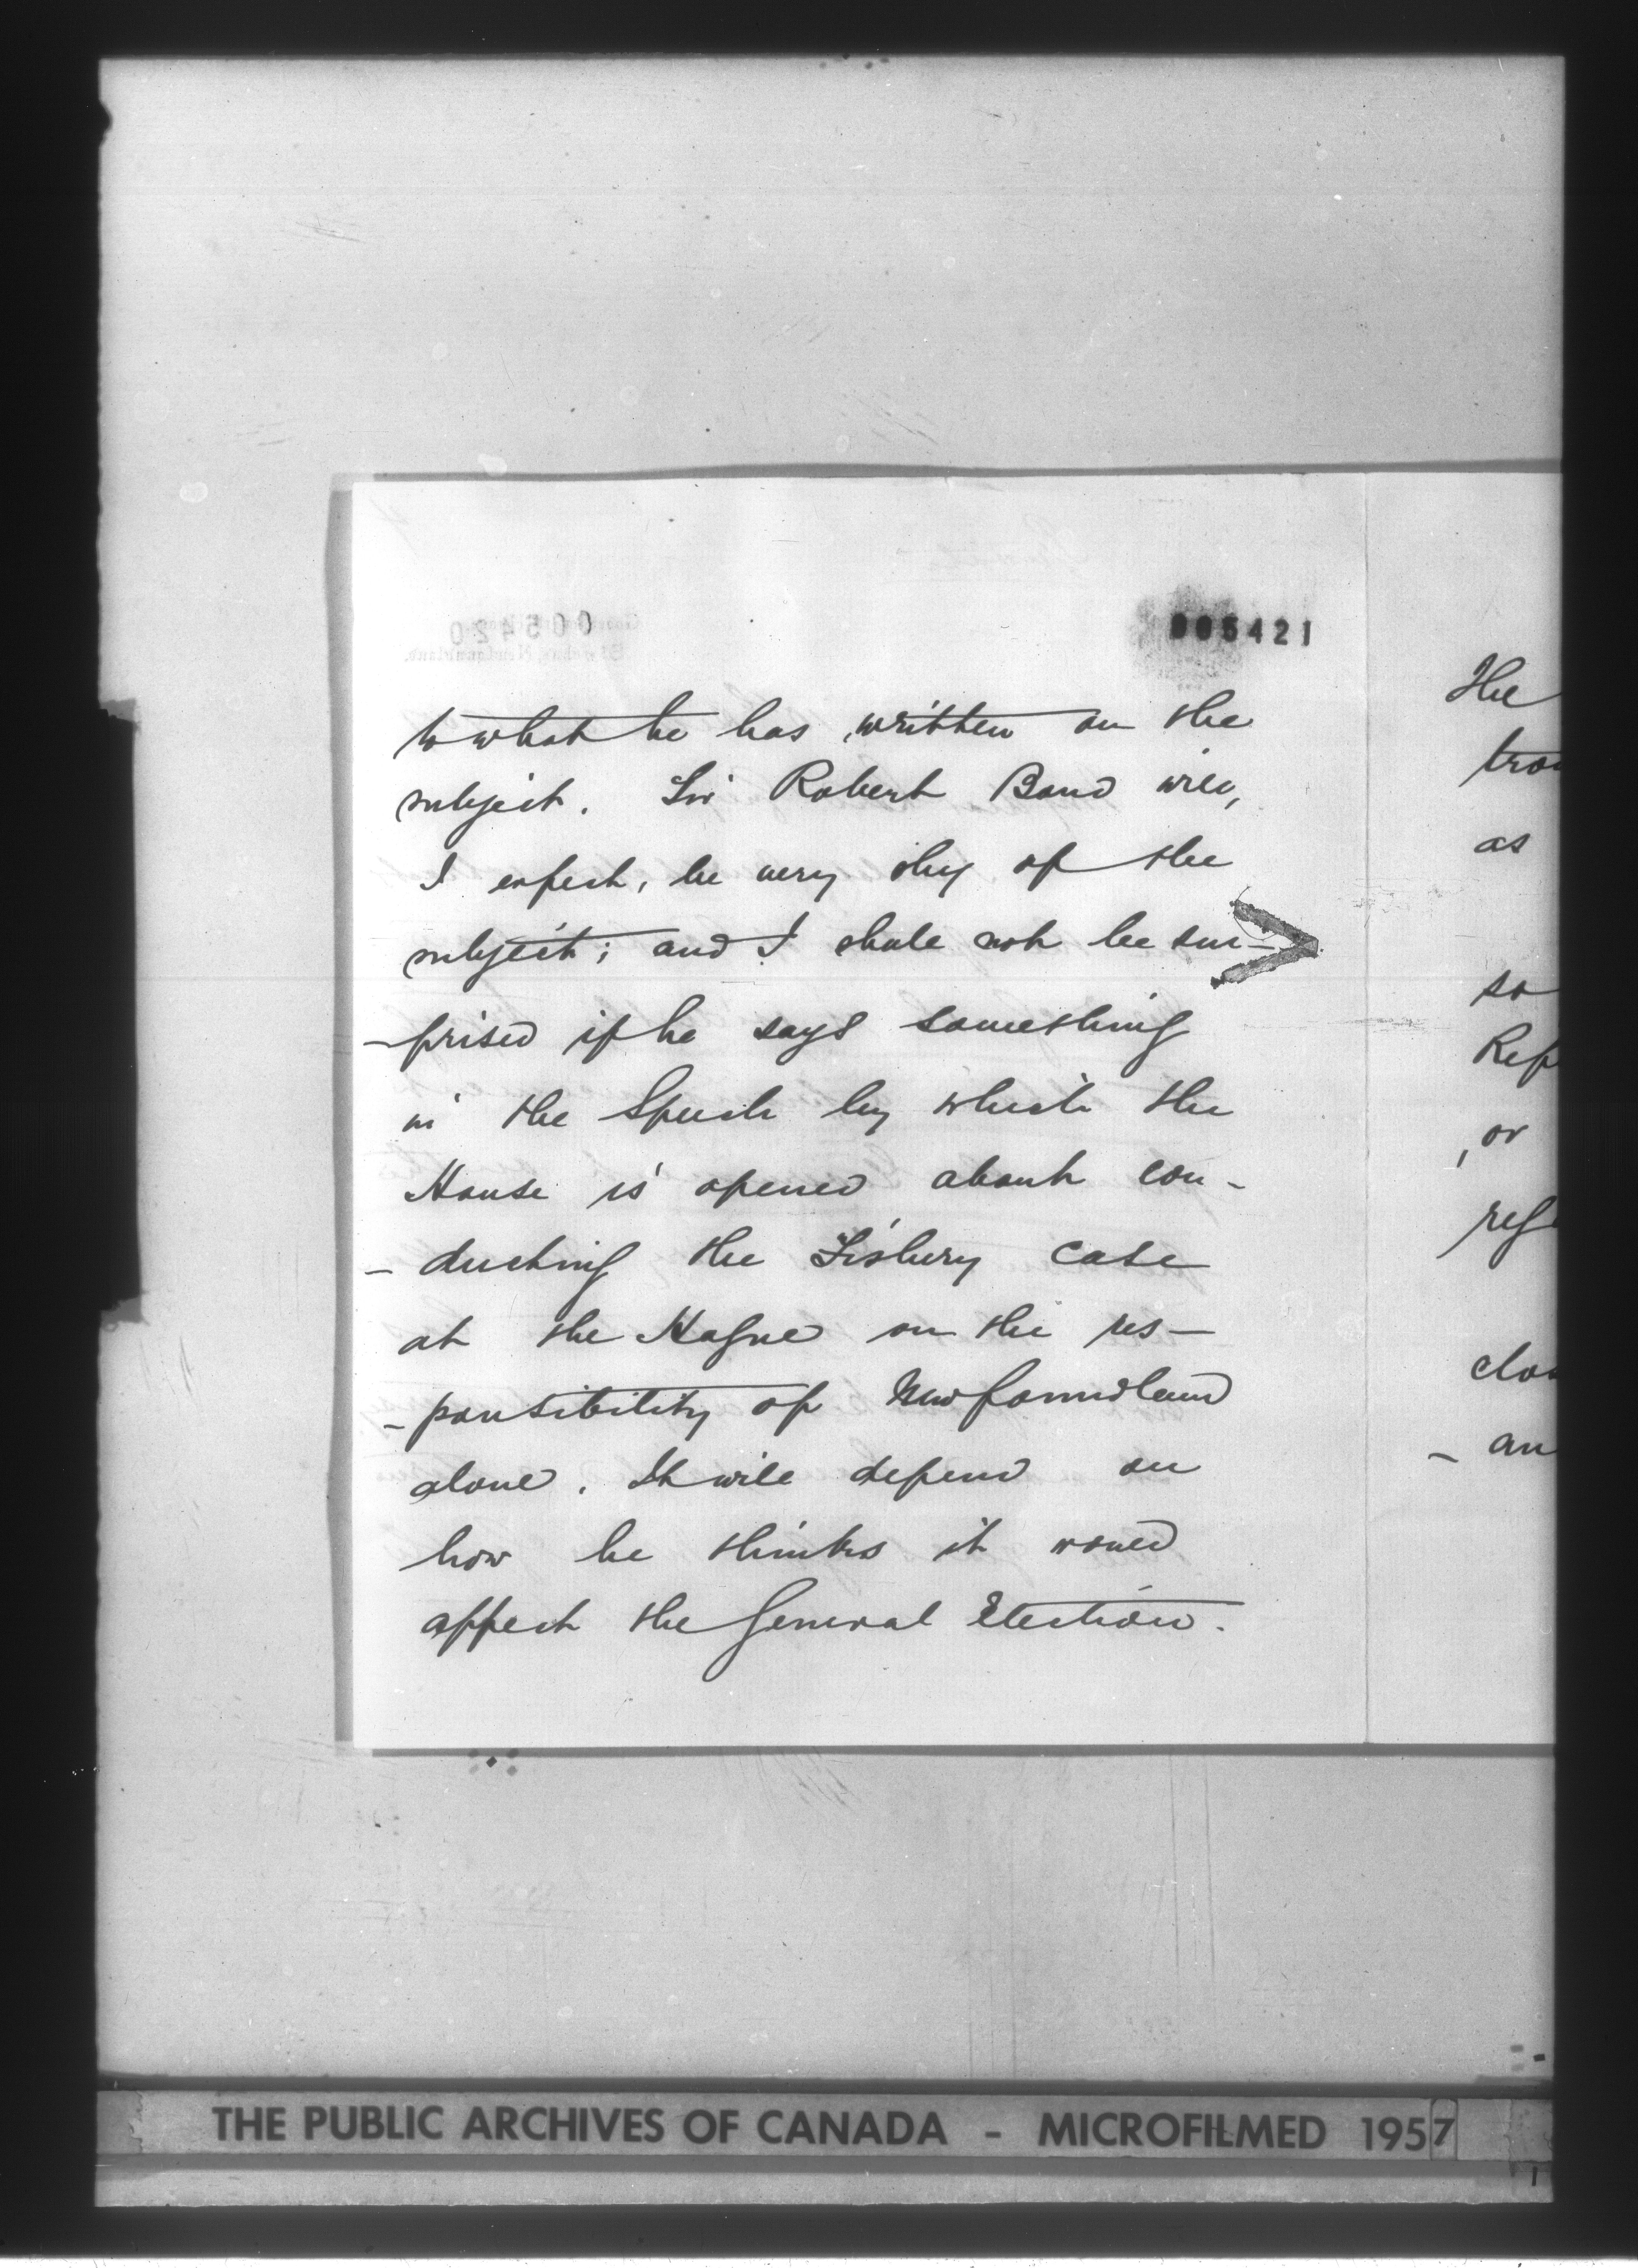 005421
to what he has written on the
subject. Sir Robert Bond will,
I expect, be very shy of the
subject; and I shall not be sur-
-prised if he says something
in the Speech by which the
House is opened about con-
-ducting the Fishery Case
at the Hague on the res-
-ponsibility of Newfoundland
alone. It will depend on
how he thinks it would
affect the General Election.
The
as
so
Rep
, or
- an
THE PUBLIC ARCHIVES OF CANADA - MICROFILMED 1957